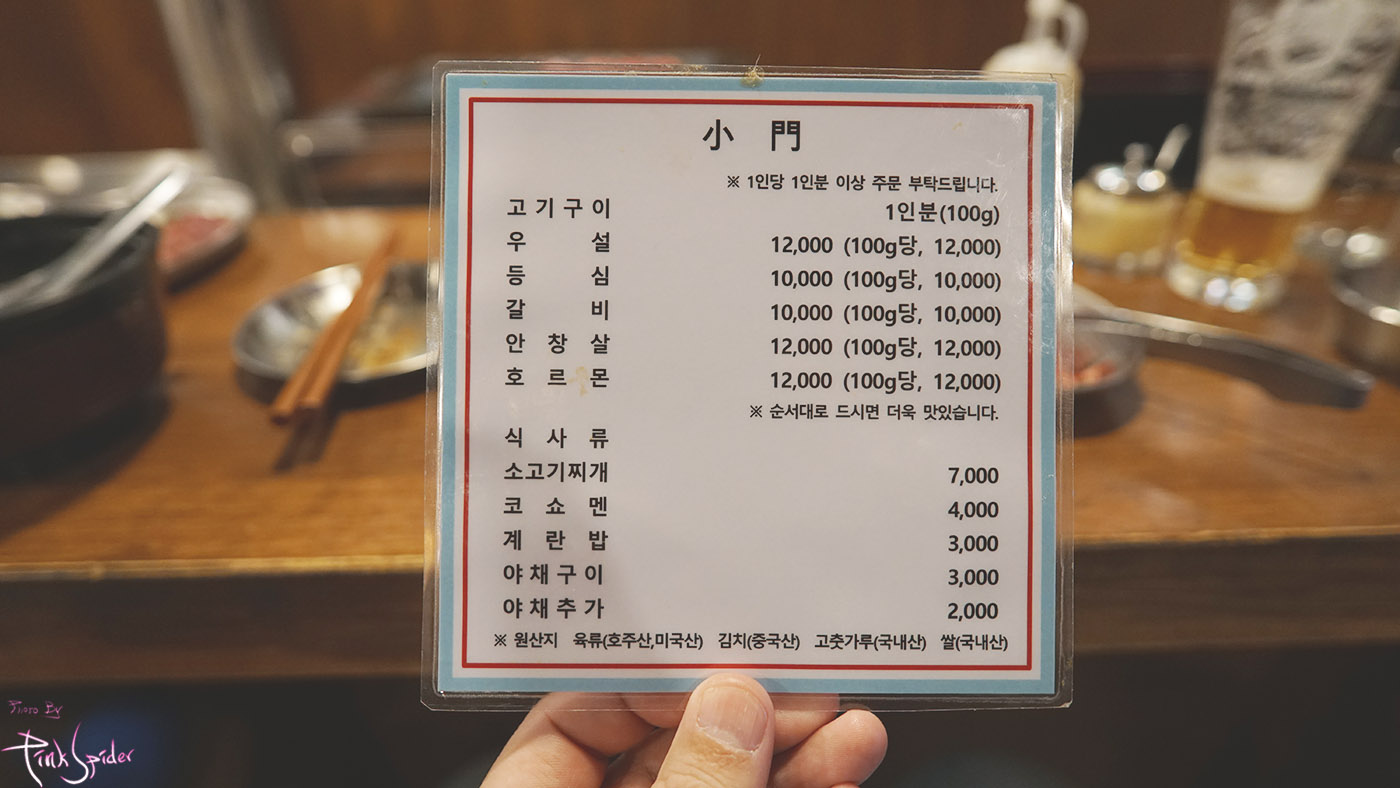 小 門
※ 1인당 1인분 이상 주문 부탁드립니다.
고기구이 1인분(100g)
우 설 12,000 (100g당, 12,000)
등 심 10,000 (100g당, 10,000)
갈 비 10,000 (100g당, 10,000)
안 창 살 12,000 (100g당, 12,000)
호 르 몬 12,000 (100g당, 12,000)
※ 순서대로 드시면 더욱 맛있습니다.
식 사 류
소고기찌개 7,000
코 쇼 멘 4,000
계 란 밥 3,000
야채구이 3,000
야채추가 2,000
※ 원산지 육류(호주산,미국산) 김치(중국산) 고춧가루(국내산) 쌀(국내산)
Photo By
Pink Spider